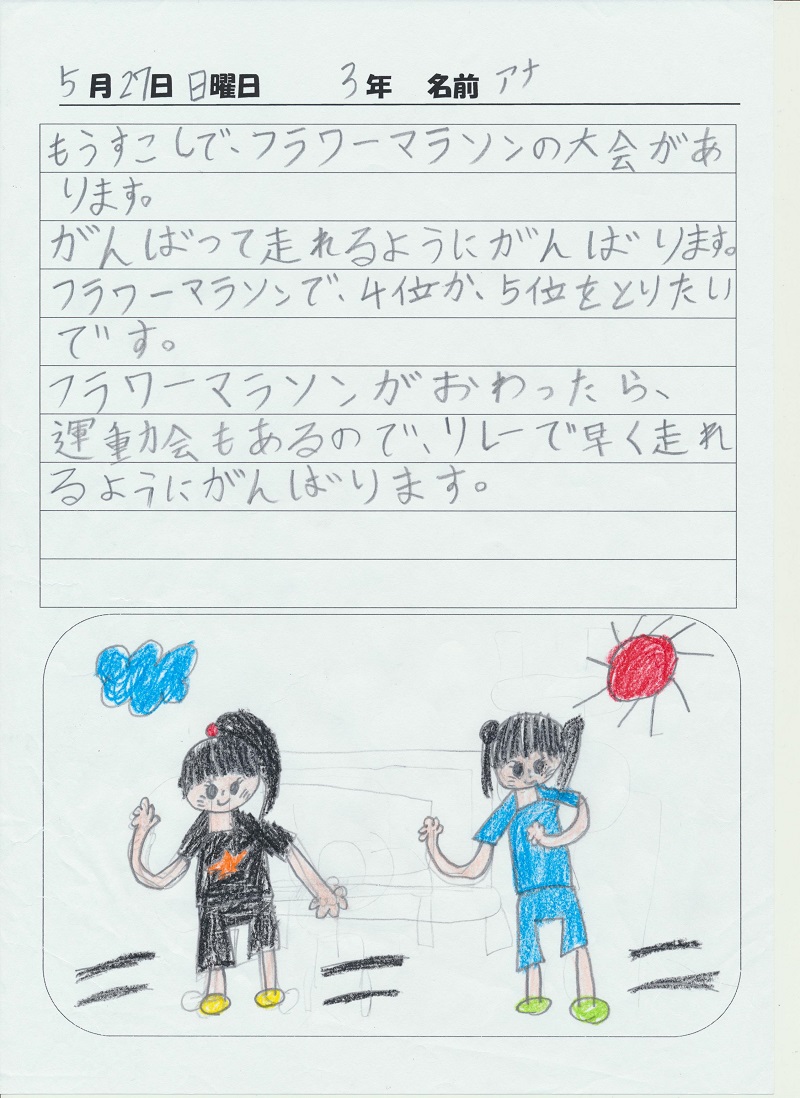 5月27日 日曜日 3年 名前 アナ
もうすこしで、フラワーマラソンの大会があ
ります。
がんばって走れるようにがんばります。
フラワーマラソンで、4位か、5位をとりたい
です。
フラワーマラソンがおわったら、
運動会もあるので、リレーで早く走れ
るようにがんばります。